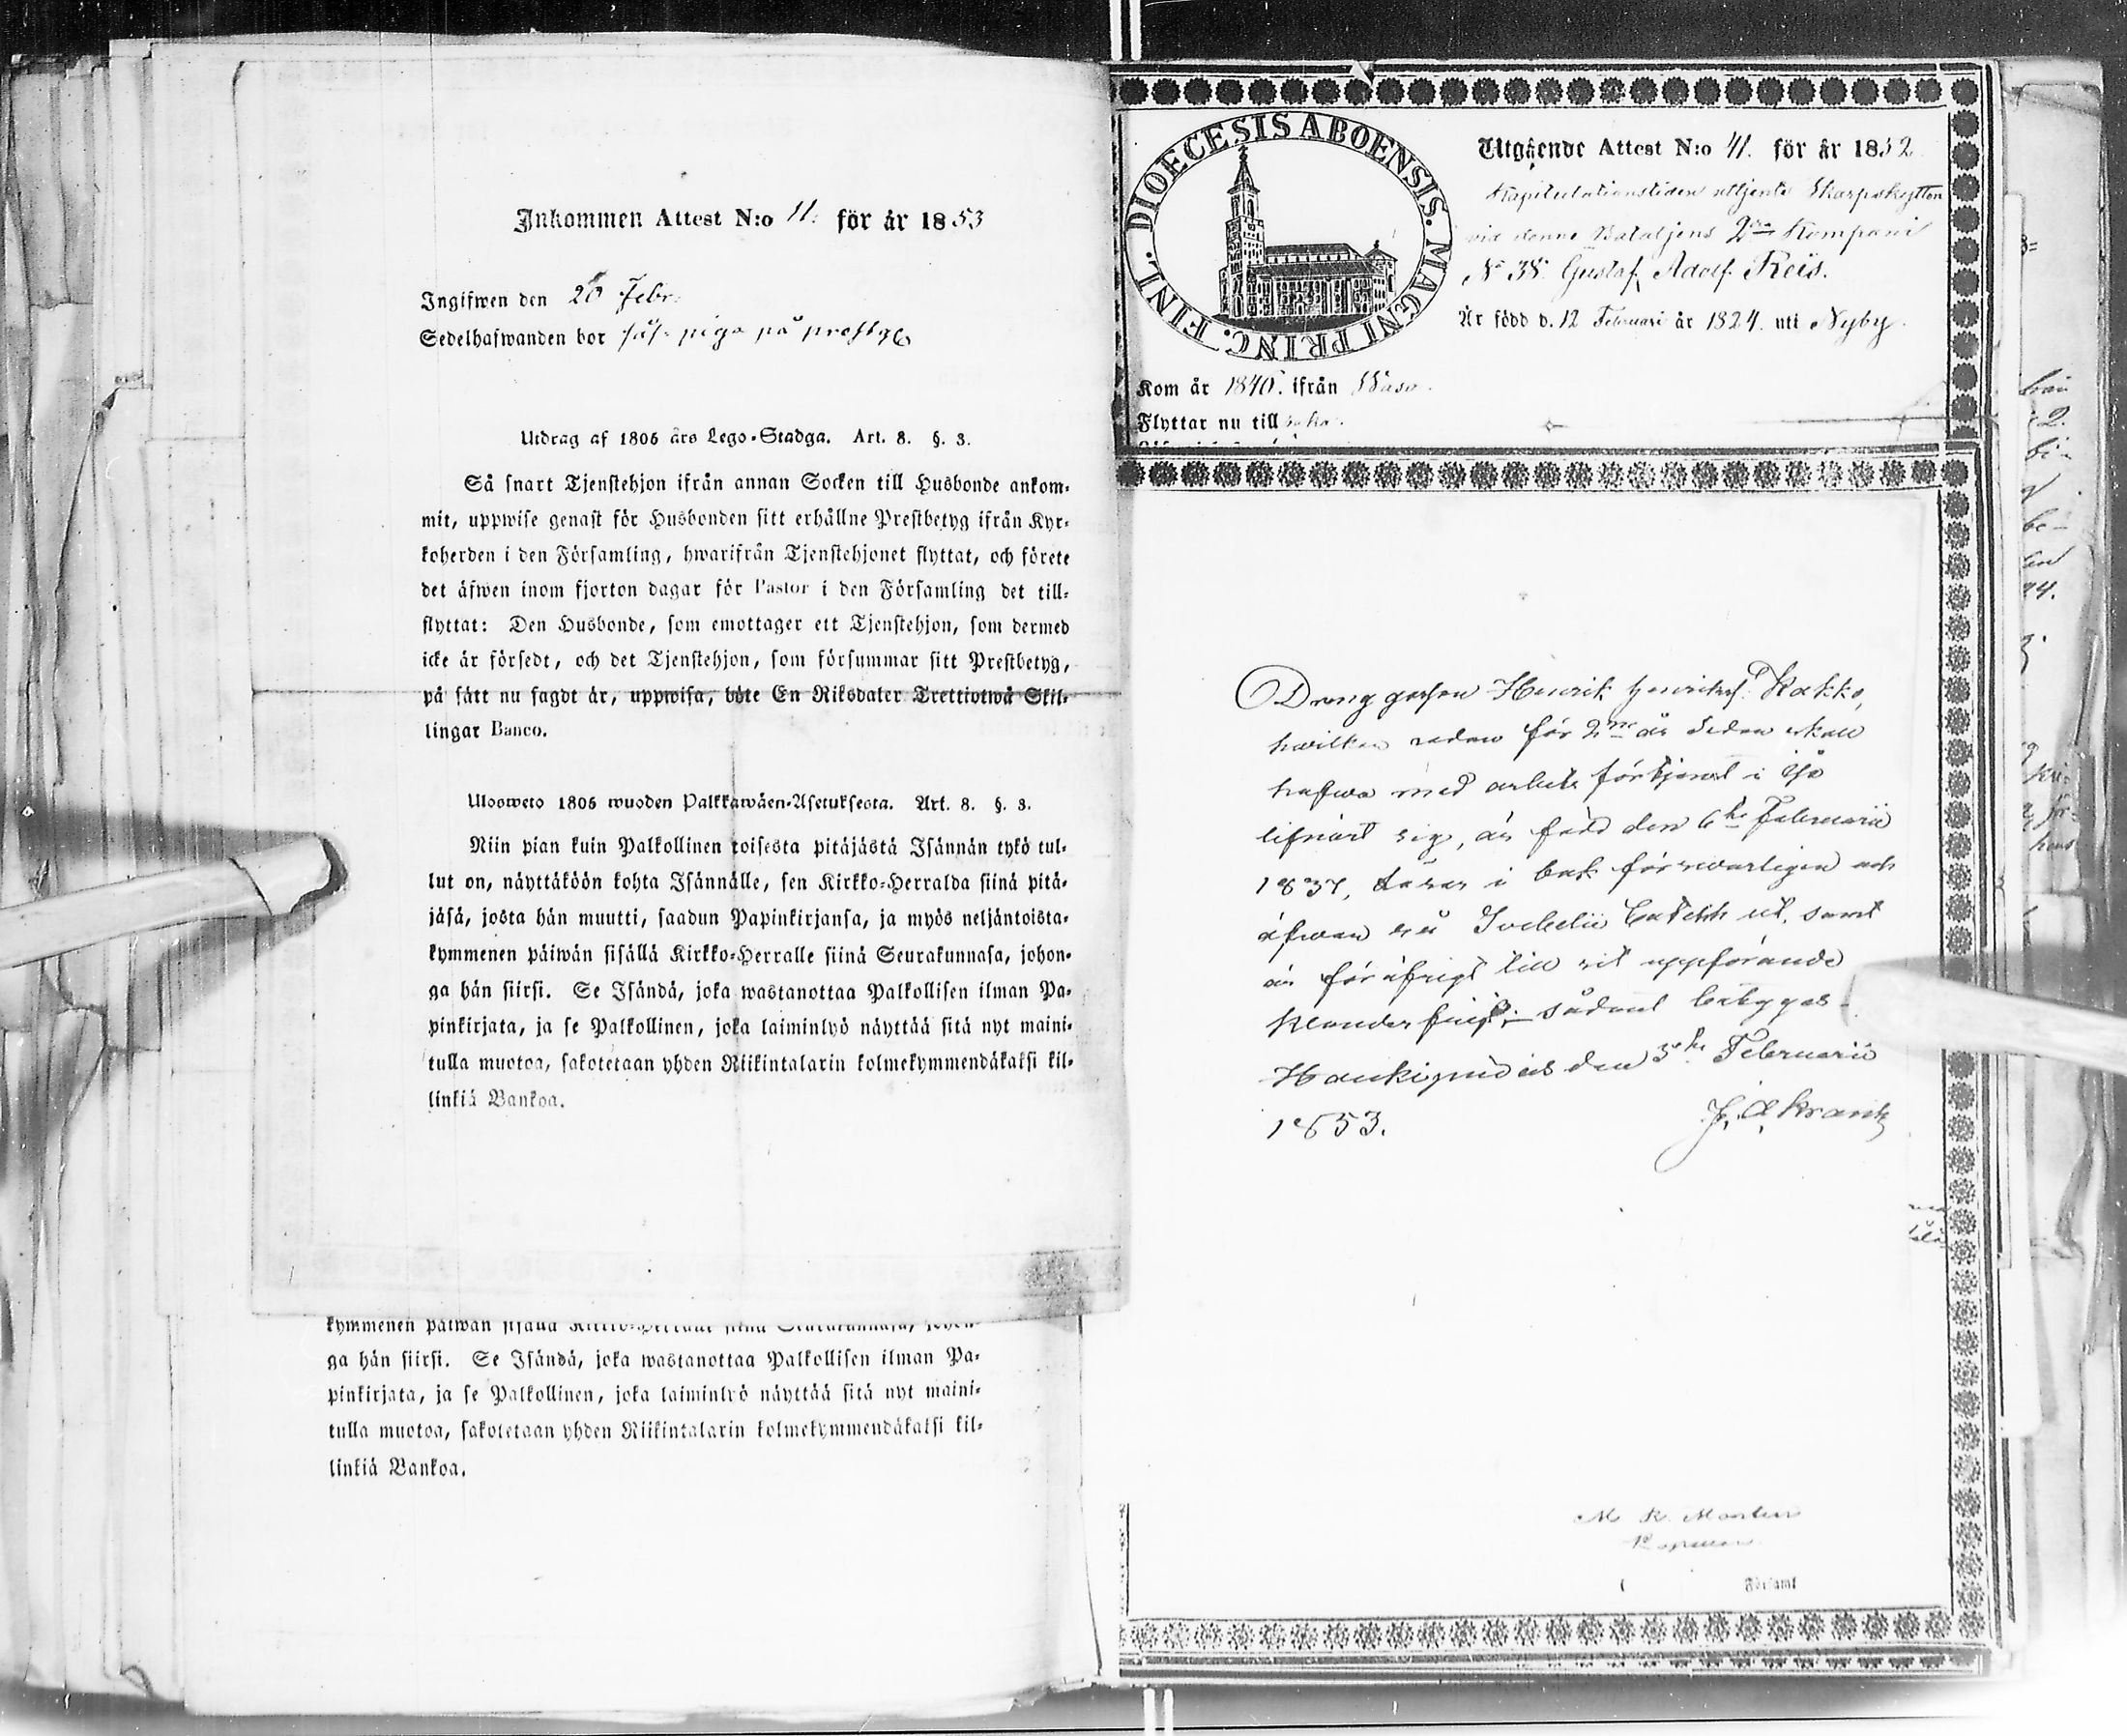 Inkommen Attest N:o 11. för år 1853
Ingifwen den 20 Febr.
Sedelhafwanden bor piga på
Utdrag af 1805 års Lego-Stadga. Art. 8. §. 3.
Så snart Tjenstehjon ifrån annan Socken till Husbonde ankom-
mit, uppwise genast för Husbonden sitt erhållne Prestbetyg ifrån Kyr-
koherden i den Församling, hwarifrån Tjenstehjonet flyttat, och förete
det äfwen inom fjorton dagar för Pastor i den Församling det till-
flyttat: Den Husbonde, som emottager ett Tjenstehjon, som dermed
icke är försedt, och det Tjenstehjon, som försummar sitt Prestbetyg,
på sätt nu sagdt är, uppwisa, böte En Riksdaler Trettiotwå Skil-
lingar Banco.
Ulosweto 1805 wuoden Palkkawäen-Asetuksesta. Art. 8. §. 3.
Niin pian kuin Palkollinen toisesta pitäjästä Isännän tykö tul-
lut on, näyttäköön kohta Isännälle, sen Kirkko-Herralda siinä pitä-
jäsä, josta hän muutti, saadun Papinkirjansa, ja myös neljäntoista-
kymmenen päiwän sisällä Kirkko-Herralle siinä Seurakunnasa, johon-
ga hän siirsi. Se Isändä, joka wastanottaa Palkollisen ilman Pa-
pinkirjata, ja se Palkollinen, joka laiminlyö näyttää sitä nyt maini-
tulla muotoa, sakotetaan yhden Riikintalarin kolmekymmendäkaksi kil-
linkiä Bankoa.
kymmenen päiwän sisällä Kirkko-Herralle siinä Seurakunnasa, johon-
ga hän siirsi. Se Isändä, joka wastanottaa Palkollisen ilman Pa-
pinkirjata, ja se Palkollinen, joka laiminlyö näyttää sitä nyt maini-
tulla muotoa, sakotetaan yhden Riikintalarin kolmekymmendäkaksi kil-
linkiä Bankoa.
DIOECESIS ABOENSIS. MAGNI PRINC. FINL.
Utgående Attest N:o 41. för år 1852
Kapitulationstiden uttjente Skarpskytten
vid denna Bataljons 2dra Kompani
No 38. Gustaf Adolf Reis.
Är född d. 12 Februari år 1824. uti Nyby.
Kom år 1846. ifrån Wasa.
Flyttar nu till
Dräng gossen Henrik Henriks. Kokko,
hvilken redan för 2ne år sedan skall
hafwa med arbete förtjenst i Ijo
lifnärt sig, är född den 6te Februarii
1837, läser i bok försvarligen och
äfwen så Svebelii Catech ut, samt
är för öfrigt till sit uppförande
klanderfri; sådant betygas
Haukipudas den 3dje Februarii
1853.
J. A. Krantz
M. R.
Kapellan
Församl